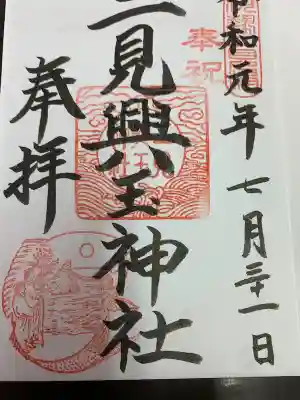 令和元年七月三十一日
奉祝
二見興玉神社
奉拝